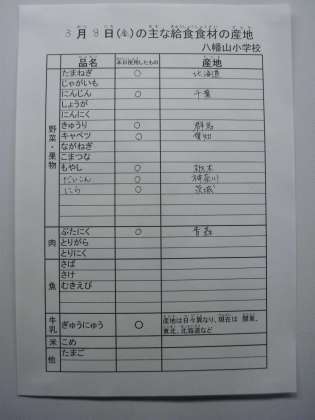 3月9日(金)の主な給食食材の産地
八幡山小学校
品名 本日使用したもの 産地
野菜・果物
たまねぎ ○ 北海道
じゃがいも
にんじん ○ 千葉
しょうが
にんにく
きゅうり ○ 群馬
キャベツ ○ 愛知
ながねぎ
こまつな
もやし ○ 栃木
だいこん ○ 神奈川
にら ○ 茨城
肉
ぶたにく ○ 青森
とりがら
とりにく
魚
さば
さけ
むきえび
牛乳 ぎゅうにゅう ○ 産地は日々異なり、現在は 関東、
東北、北海道など
米 こめ
他 たまご